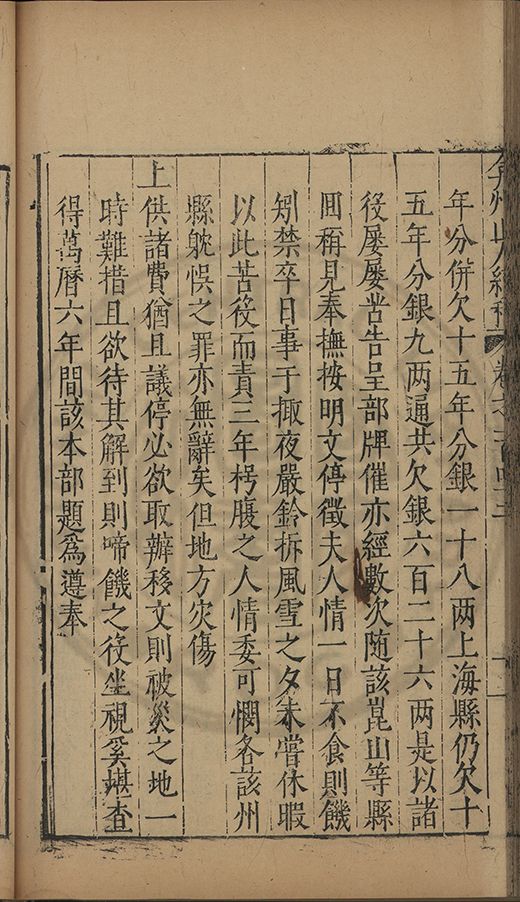 弇州山人續稿 卷之一百四十三
年分併欠十五年分銀一十八两上海縣仍欠十
五年分銀九两通共欠銀六百二十六两是以諸
役屡屡苦告呈部牌催亦經數次随該崑山等縣
囬稱見奉撫按明文停徵夫人情一日不食則饑
矧禁卒日事于掫夜嚴鈴柝風雪之夕未嘗休暇
以此苦役而責三年枵腹之人情委可憫各該州
縣躭悞之罪亦無辭矣但地方灾傷
上供諸費猶且議停必欲取辦移文則被災之地一
時難措且欲待其解到則啼饑之役坐視奚堪查
得萬曆六年間該本部題爲遵奉